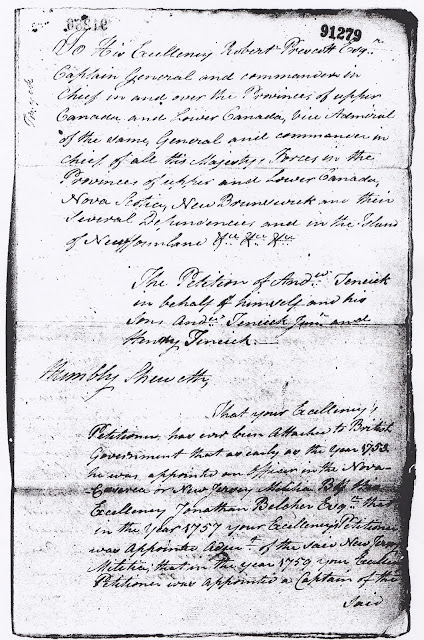 91280
91279
To His Excellency Robert Prescott Esqr.
Captain General and commander in
Chief in and over the Provinces of upper
Canada and Lower Canada, Vice Admiral
of the same, General and commander in
chief of all his Majestys Forces in the
Provinces of upper and Lower Canada,
Nova Scotia, New Brunswick and their
Several Dependencies and in the Island
of Newfoundland &cc &cc &cc
The Petition of Andw. Teneick
in behalf of himself and his
Sons Andw. Teneick Junr. and
Henry Teneick.
Humbly Sheweth,
That your Excellency's
Petitioner has ever been Attached to British
Government that as early as the Year 1753
he was appointed an Officer in the Nova
Caesarea or New Jersey Militia By
Excellency Jonathan Belcher Esqr. that
in the Year 1757 your Excellency's Petitioner
was Appointed Adjut. of the said New Jersey
Militia, that in the year 1759 your Excellency
Petitioner was appointed a Captain of the
Said